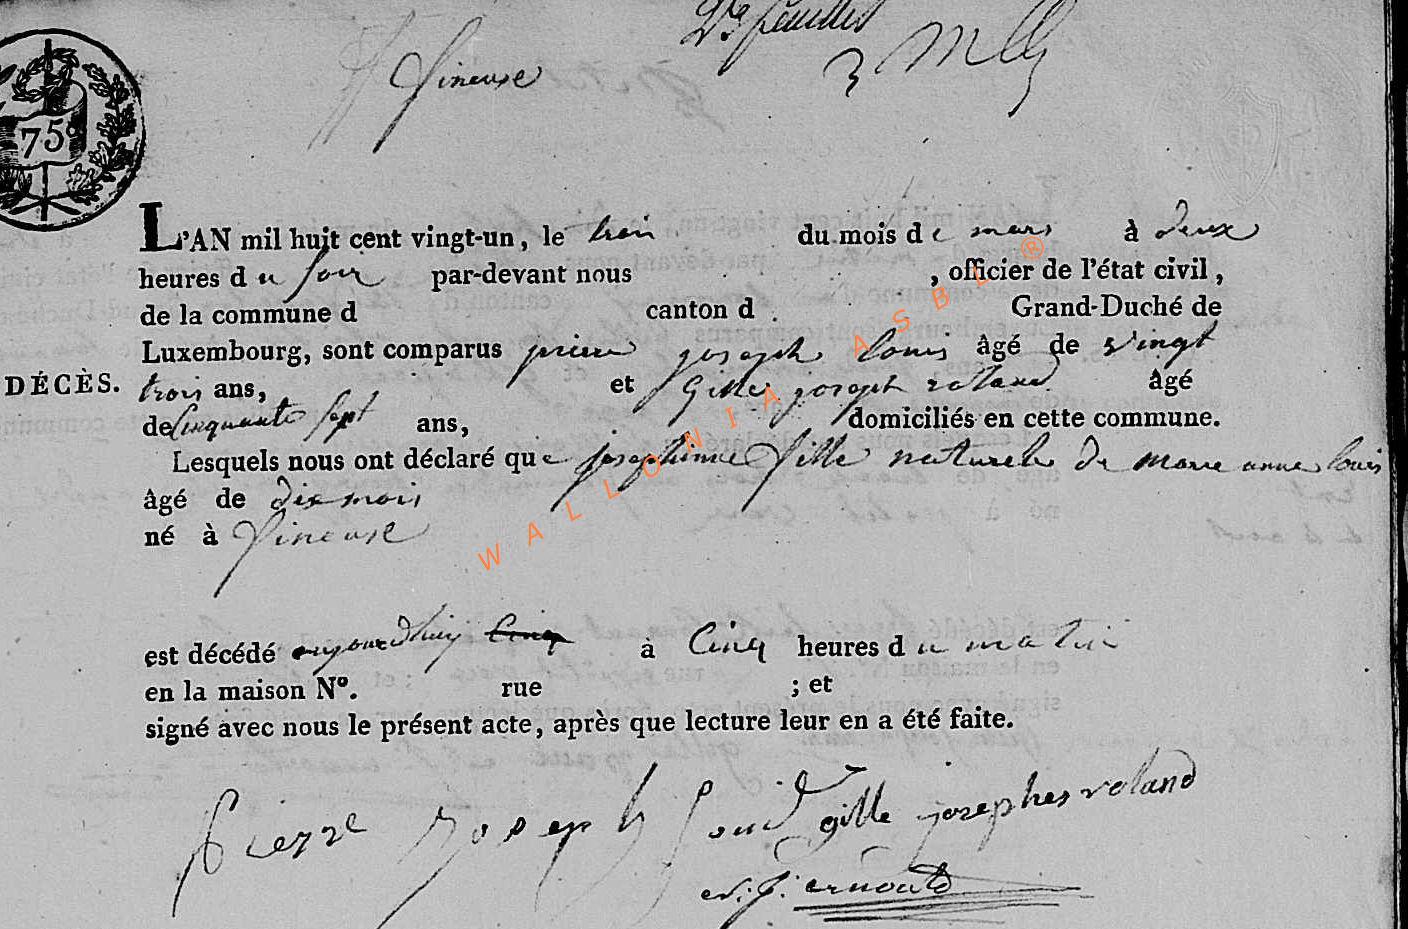 2e feuillet
fineuse
75c
L'AN mil huit cent vingt-un, le trois du mois de mars à deux
heures du soir par-devant nous , officier de l'état civil,
de la commune d canton d Grand-Duché de
Luxembourg, sont comparus pierre joseph louis âgé de vingt
DÉCÈS.
trois ans, et Gille joseph roland âgé
de cinquante sept ans, domiciliés en cette commune.
Lesquels nous ont déclaré que josephinne fille naturele de marie anne louis
âgé de dix mois
né à fineuse
est décédé aujourdhuy cinq à Cinq heures du matin
en la maison N°. rue ; et
signé avec nous le présent acte, après que lecture leur en a été faite.
pierre joseph Louis gille josephes roland
arnould
WALLONIA ASBL ®